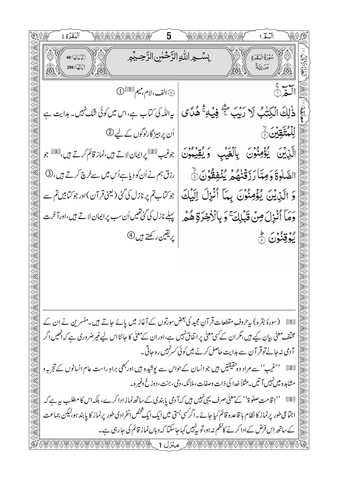 البقرة ٢
5
الٓمّٓ ١
بِسْمِ اللّٰهِ الرَّحْمٰنِ الرَّحِيْمِ
الٓمّٓ ۚ
ذٰلِكَ الْكِتٰبُ لَا رَيْبَ ۛۖ فِيْهِ ۛۚ هُدًى
لِّلْمُتَّقِيْنَ ۙ
الَّذِيْنَ يُؤْمِنُوْنَ بِالْغَيْبِ وَيُقِيْمُوْنَ
الصَّلٰوةَ وَمِمَّا رَزَقْنٰهُمْ يُنْفِقُوْنَ ۙ
وَ الَّذِيْنَ يُؤْمِنُوْنَ بِمَاۤ اُنْزِلَ اِلَيْكَ
وَمَاۤ اُنْزِلَ مِنْ قَبْلِكَ ۚ وَ بِالْاٰخِرَةِ هُمْ
يُوْقِنُوْنَ ۭ
الف، لام، میم ①
یہ اللہ کی کتاب ہے، اس میں کوئی شک نہیں۔ ہدایت ہے
اُن پرہیز گار لوگوں کے لیے ②
جو غیب پر ایمان لاتے ہیں، نماز قائم کرتے ہیں، جو
رزق ہم نے اُن کو دیا ہے اُس میں سے خرچ کرتے ہیں، ③
جو کتاب تم پر نازل کی گئی (یعنی قرآن) اور جو کتابیں تم سے
پہلے نازل کی گئی تھیں اُن سب پر ایمان لاتے ہیں، اور آخرت
پر یقین رکھتے ہیں ④
(سورۂ بقرہ) یہ حروف مقطعات قرآن مجید کی بعض سورتوں کے آغاز میں پائے جاتے ہیں۔ مفسرین نے ان کے
مختلف معنی بیان کیے ہیں، مگر ان کے کسی معنی پر اتفاق نہیں ہے، اور ان کے معنی کا جاننا اس لیے غیر ضروری ہے کہ انھیں اگر
آدمی نہ جانے تو قرآن سے ہدایت حاصل کرنے میں کوئی کسر نہیں رہ جاتی۔
”غیب“ سے مراد وہ حقیقتیں ہیں جو انسان کے حواس سے پوشیدہ ہیں اور کبھی براہ راست عام انسانوں کے تجربہ و
مشاہدہ میں نہیں آتیں۔ مثلاً خدا کی ذات و صفات، ملائکہ، وحی، جنت، دوزخ وغیرہ۔
”اقامت صلوٰۃ“ کے معنی صرف یہی نہیں ہیں کہ آدمی پابندی کے ساتھ نماز ادا کرے، بلکہ اس کا مطلب یہ ہے کہ
اجتماعی طور پر نماز کا نظام باقاعدہ قائم کیا جائے۔ اگر کسی بستی میں ایک ایک شخص انفرادی طور پر نماز کا پابند ہو، لیکن جماعت
کے ساتھ اس فرض کے ادا کرنے کا نظم نہ ہو، تو یہ نہیں کہا جا سکتا کہ وہاں نماز قائم کی جا رہی ہے۔
منزل 1